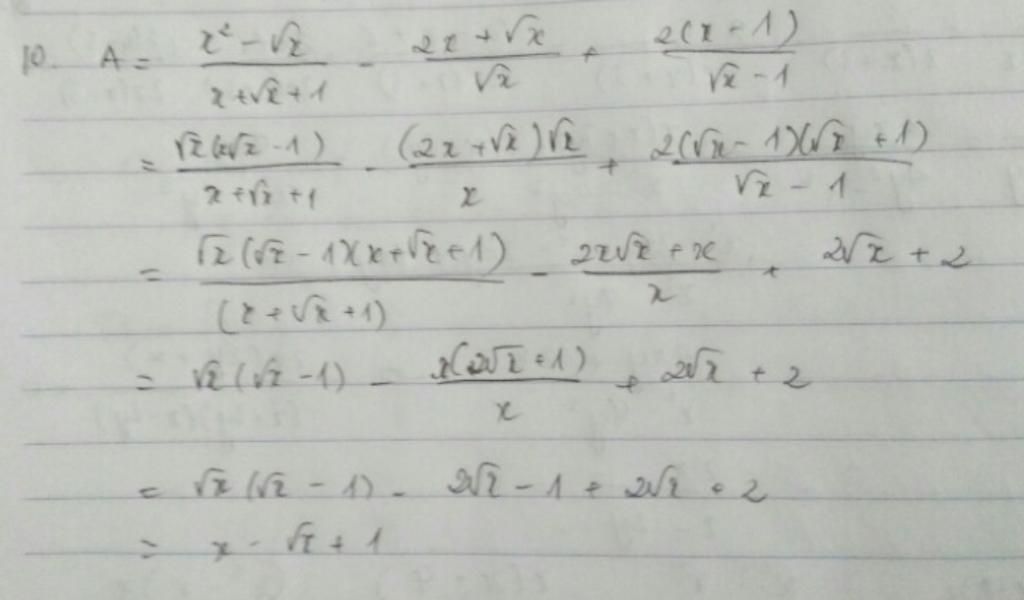 10. A = (x² - √x)/(x + √x + 1) - (2x + √x)/√x + 2(x - 1)/(√x - 1)
= √x(x√x - 1)/(x + √x + 1) - (2x + √x)√x/x + 2(√x - 1)(√x + 1)/(√x - 1)
= √x(√x - 1)(x + √x + 1)/(x + √x + 1) - (2x√x + x)/x + 2√x + 2
= √x(√x - 1) - x(2√x + 1)/x + 2√x + 2
= √x(√x - 1) - 2√x - 1 + 2√x + 2
= x - √x + 1